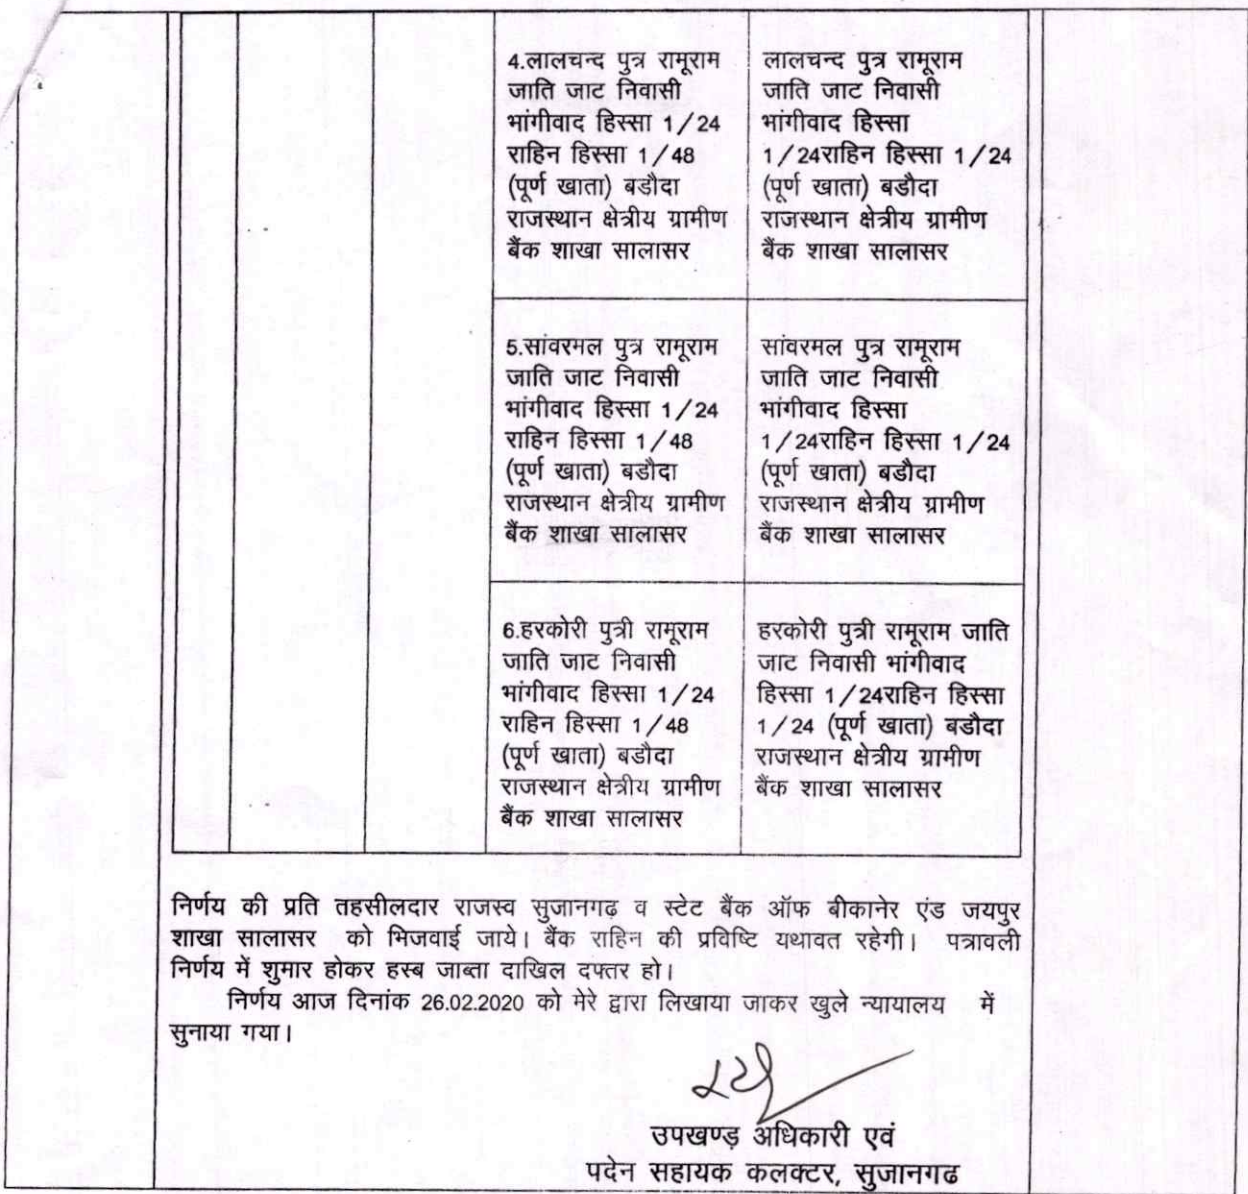 4.लालचन्द पुत्र रामूराम
जाति जाट निवासी
भांगीवाद हिस्सा 1/24
राहिन हिस्सा 1/48
(पूर्ण खाता) बडौदा
राजस्थान क्षेत्रीय ग्रामीण
बैंक शाखा सालासर
लालचन्द पुत्र रामूराम
जाति जाट निवासी
भांगीवाद हिस्सा
1/24राहिन हिस्सा 1/24
(पूर्ण खाता) बडौदा
राजस्थान क्षेत्रीय ग्रामीण
बैंक शाखा सालासर
5.सांवरमल पुत्र रामूराम
जाति जाट निवासी
भांगीवाद हिस्सा 1/24
राहिन हिस्सा 1/48
(पूर्ण खाता) बडौदा
राजस्थान क्षेत्रीय ग्रामीण
बैंक शाखा सालासर
सांवरमल पुत्र रामूराम
जाति जाट निवासी
भांगीवाद हिस्सा
1/24राहिन हिस्सा 1/24
(पूर्ण खाता) बडौदा
राजस्थान क्षेत्रीय ग्रामीण
बैंक शाखा सालासर
6.हरकोरी पुत्री रामूराम
जाति जाट निवासी
भांगीवाद हिस्सा 1/24
राहिन हिस्सा 1/48
(पूर्ण खाता) बडौदा
राजस्थान क्षेत्रीय ग्रामीण
बैंक शाखा सालासर
हरकोरी पुत्री रामूराम जाति
जाट निवासी भांगीवाद
हिस्सा 1/24राहिन हिस्सा
1/24 (पूर्ण खाता) बडौदा
राजस्थान क्षेत्रीय ग्रामीण
बैंक शाखा सालासर
निर्णय की प्रति तहसीलदार राजस्व सुजानगढ़ व स्टेट बैंक ऑफ बीकानेर एंड जयपुर
शाखा सालासर को भिजवाई जाये। बैंक राहिन की प्रविष्टि यथावत रहेगी। पत्रावली
निर्णय में शुमार होकर हस्ब जाब्ता दाखिल दफ्तर हो।
निर्णय आज दिनांक 26.02.2020 को मेरे द्वारा लिखाया जाकर खुले न्यायालय में
सुनाया गया।
उपखण्ड़ अधिकारी एवं
पदेन सहायक कलक्टर, सुजानगढ